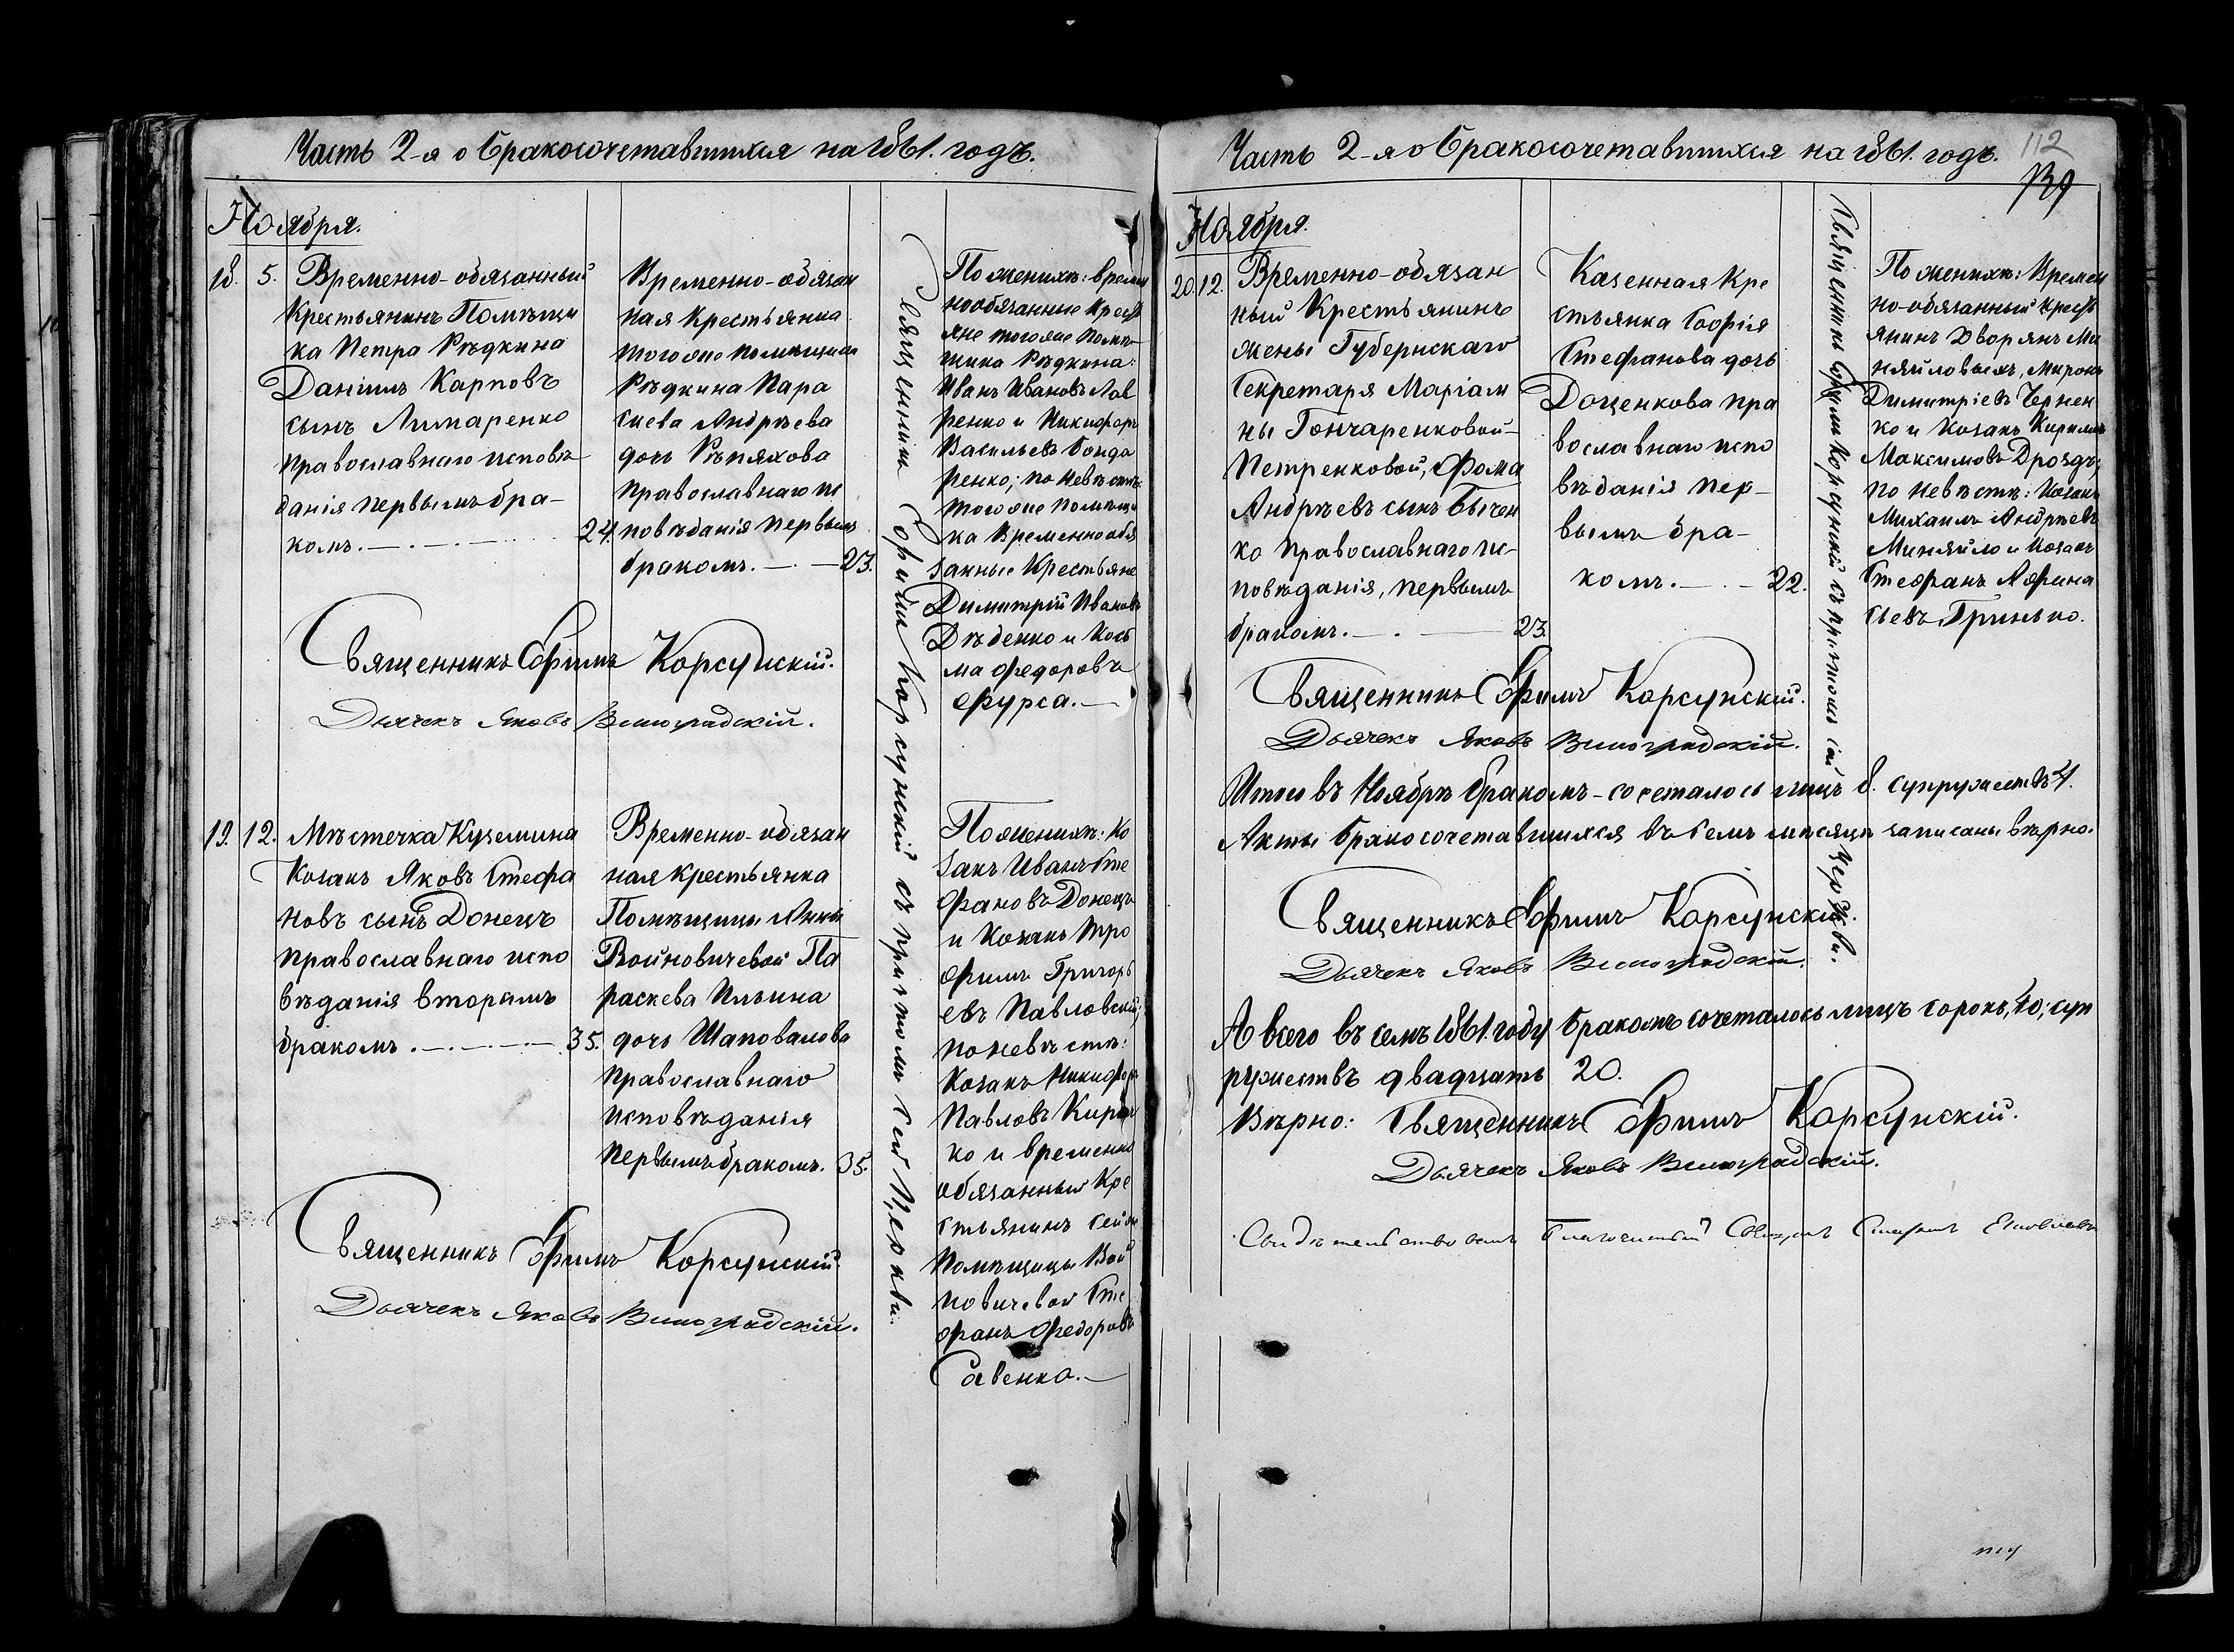 Часть 2-я о бракосочетавшихся на 1861. годъ.
Ноября.
18. 5. Временно-обязанный
Крестьянинъ Помѣщи
ка Петра Рѣдкина
Даніилъ Карповъ
сынъ Лимаренко
православнаго исповѣ
данія первымъ бра-
комъ. 24.
Временно-обязан
ная Крестьянка
тогоже помѣщика
Рѣдкина Пара
скева Андрѣева
дочь Рѣпяхова
православнаго ис
повѣданія первымъ
бракомъ. 23.
Священникъ Ефимъ Корсунскій съ причтомъ сей Церкви.
По женихѣ: времен
нообязанные Крест
яне тогоже помѣ
щика Рѣдкина:
Иванъ Ивановъ Лав
ренко и Никифоръ
Васильевъ Бонда
ренко; по невѣстѣ:
тогоже помѣщи
ка Временнообя
занные Крестьяне
Димитрій Ивановъ
Дѣденко и Кось
ма Федоровъ
Фурса.
Священникъ Ефимъ Корсунскій.
Дьячекъ Яковъ Виноградскій.
19. 12. Мѣстечка Куземина
Козакъ Яковъ Стефа
новъ сынъ Донецъ
православнаго испо
вѣданія вторымъ
бракомъ. 35.
Временно-обязан
ная Крестьянка
Помѣщицы Анны
Войновичевой Па
раскева Ильина
дочь Шаповалова
православнаго
исповѣданія
первымъ бракомъ. 35.
По женихѣ: Ко
закъ Иванъ Сте
фановъ Донецъ
и Козакъ Тро
фимъ Григорь
евъ Павловскій;
по невѣстѣ:
Козакъ Никифоръ
Павловъ Кирич
ко и временно
обязанный Кре
стьянинъ сей же
Помѣщицы Вой
новичевой Сте
фанъ Федоровъ
Савенко.
Священникъ Ефимъ Корсунскій.
Дьячекъ Яковъ Виноградскій.
Часть 2-я о бракосочетавшихся на 1861. годъ.
112
Ноября.
20. 12. Временно-обязан
ный Крестьянинъ
жены Губернскаго
Секретаря Маріам
ны Гончаренковой-
Петренковой, Фома
Андрѣевъ сынъ Бычен
ко православнаго ис-
повѣданія, первымъ
бракомъ. 23.
Казенная Кре
стьянка Софія
Стефанова дочь
Доценкова пра
вославнаго испо
вѣданія пер-
вымъ бра-
комъ. 22.
Священникъ Ефимъ Корсунскій съ причтомъ сей Церкви.
По женихѣ: Времен
но-обязанный крест
янинъ Дворянъ Ми
няйловыхъ, Миронъ
Димитріевъ Чернен
ко и Козакъ Кириллъ
Максимовъ Дроздъ;
по невѣстѣ: Козакъ
Михаилъ Андрѣевъ
Миняйло и Козакъ
Стефанъ Афана
сьевъ Гринько.
Священникъ Ефимъ Корсунскій.
Дьячекъ Яковъ Виноградскій.
Итого въ Ноябрѣ бракомъ-сочеталось лицъ 8. супружествъ 4.
Акты бракосочетавшихся въ семъ мѣсяцѣ записаны вѣрно.
Священникъ Ефимъ Корсунскій.
Дьячекъ Яковъ Виноградскій.
А всего въ семъ 1861. году бракомъ сочеталось лицъ сорокъ, 40; суп
ружествъ двадцать 20.
Вѣрно: Священникъ Ефимъ Корсунскій.
Дьячекъ Яковъ Виноградскій.
Свидѣтельствовалъ Благочинный